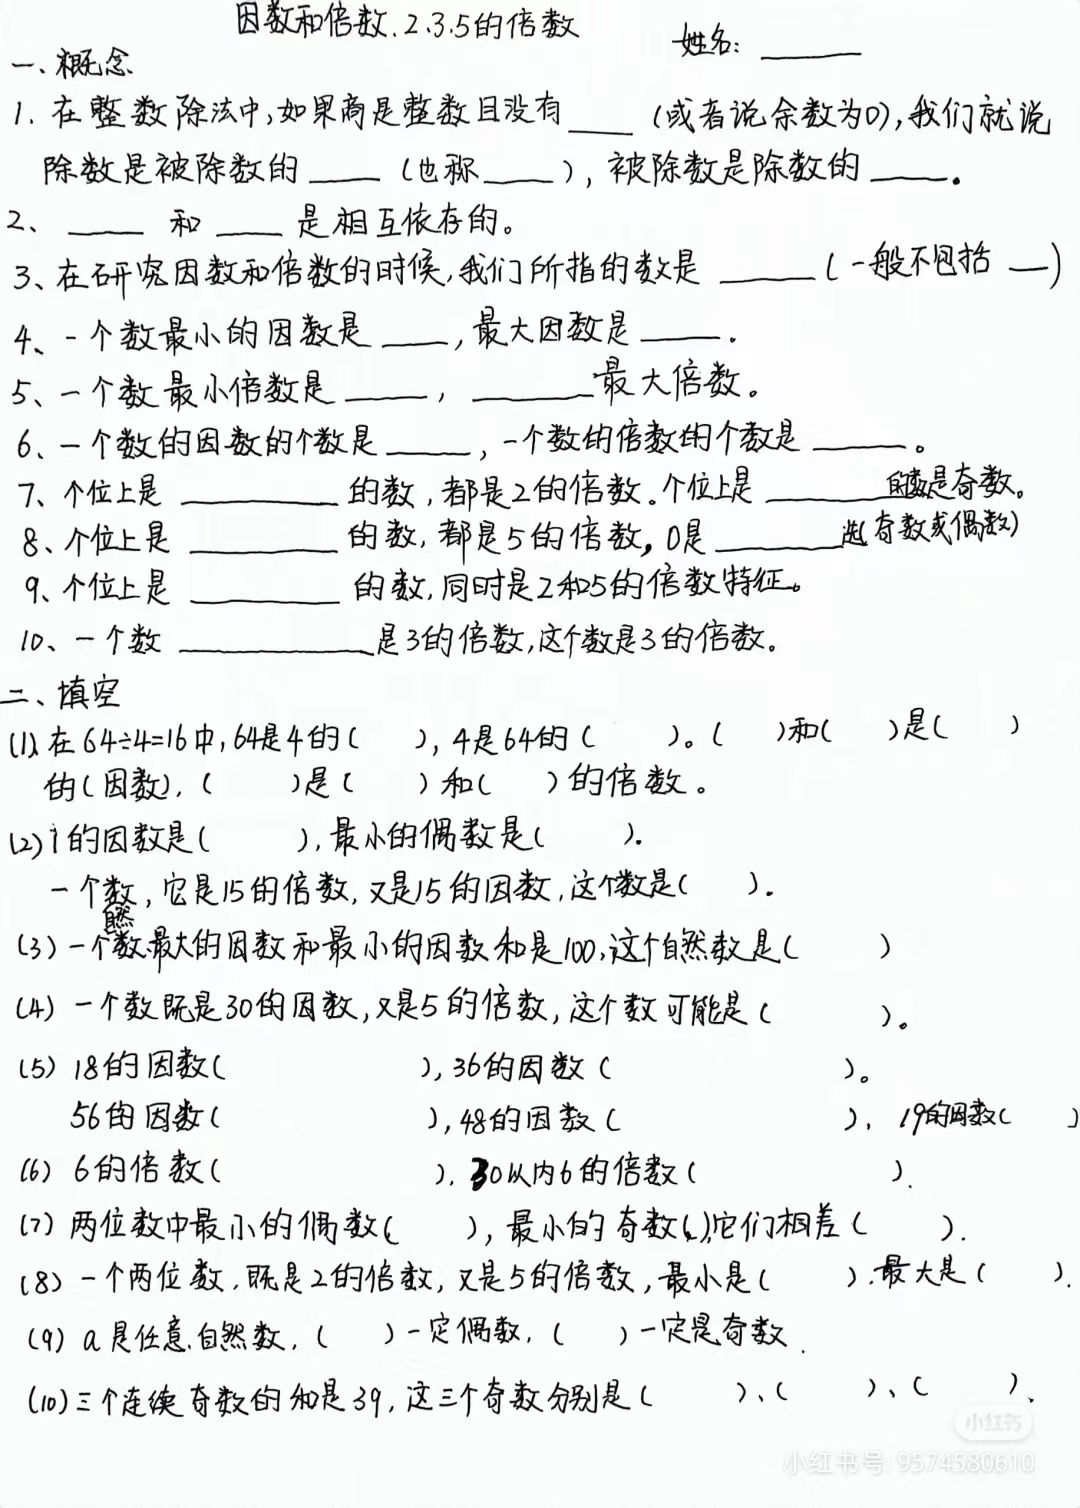 因数和倍数.2.3.5的倍数
姓名: ______
一、概念
1. 在整数除法中,如果商是整数且没有____(或者说余数为0),我们就说
除数是被除数的____(也称____),被除数是除数的____.
2、____和____是相互依存的。
3、在研究因数和倍数的时候,我们所指的数是______(一般不包括__)
4、一个数最小的因数是____,最大因数是____.
5、一个数最小倍数是____,______最大倍数。
6、一个数的因数的个数是____,一个数的倍数的个数是____。
7、个位上是________的数,都是2的倍数。个位上是______的数是奇数。
8、个位上是________的数,都是5的倍数,0是______选(奇数或偶数)
9、个位上是________的数,同时是2和5的倍数特征。
10、一个数__________是3的倍数,这个数是3的倍数。
二、填空
(1)、在64÷4=16中,64是4的( ),4是64的( )。( )和( )是( )
的(因数),( )是( )和( )的倍数。
(2)1的因数是( ),最小的偶数是( ).
一个数,它是15的倍数,又是15的因数,这个数是( ).
(3)一个自然数最大的因数和最小的因数和是100,这个自然数是( )
(4)一个数既是30的因数,又是5的倍数,这个数可能是( )。
(5)18的因数( ),36的因数( )。
56的因数( ),48的因数( ),19的因数( )
(6)6的倍数( ).30以内6的倍数( ).
(7)两位数中最小的偶数( ),最小的奇数( ),它们相差( ).
(8)一个两位数,既是2的倍数,又是5的倍数,最小是( ).最大是( ).
(9)a是任意自然数,( )一定偶数,( )一定是奇数.
(10)三个连续奇数的和是39,这三个奇数分别是( )、( )、( ).
小红书
小红书号 9574580610